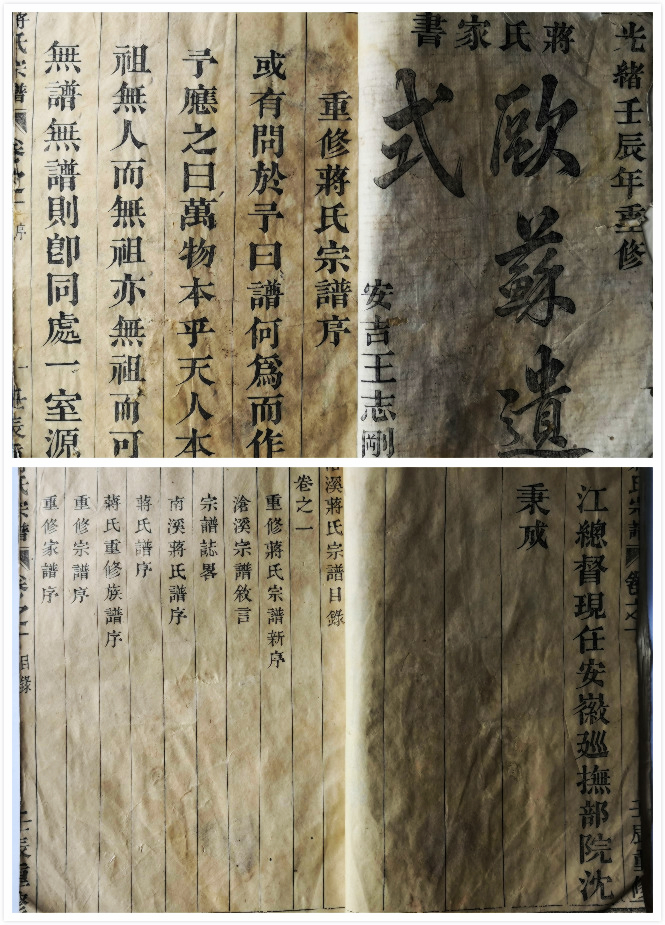 光緒壬辰年重修
蔣氏家書
歐蘇遺
式
安吉王志剛
重修蔣氏宗譜序
或有問於予曰譜何爲而作
予應之曰萬物本乎天人本
祖無人而無祖亦無祖而可
無譜無譜則卽同處一室源
氏宗譜
序
氏宗譜 卷之一
壬辰重修
江總督現任安徽廵撫部院沈
秉成
溪蔣氏宗譜目錄
卷之一
重修蔣氏宗譜新序
滄溪宗譜敘言
宗譜誌畧
南溪蔣氏譜序
蔣氏譜序
蔣氏重修族譜序
重修宗譜序
重修家譜序
氏宗譜 卷之一 目錄
壬辰重修